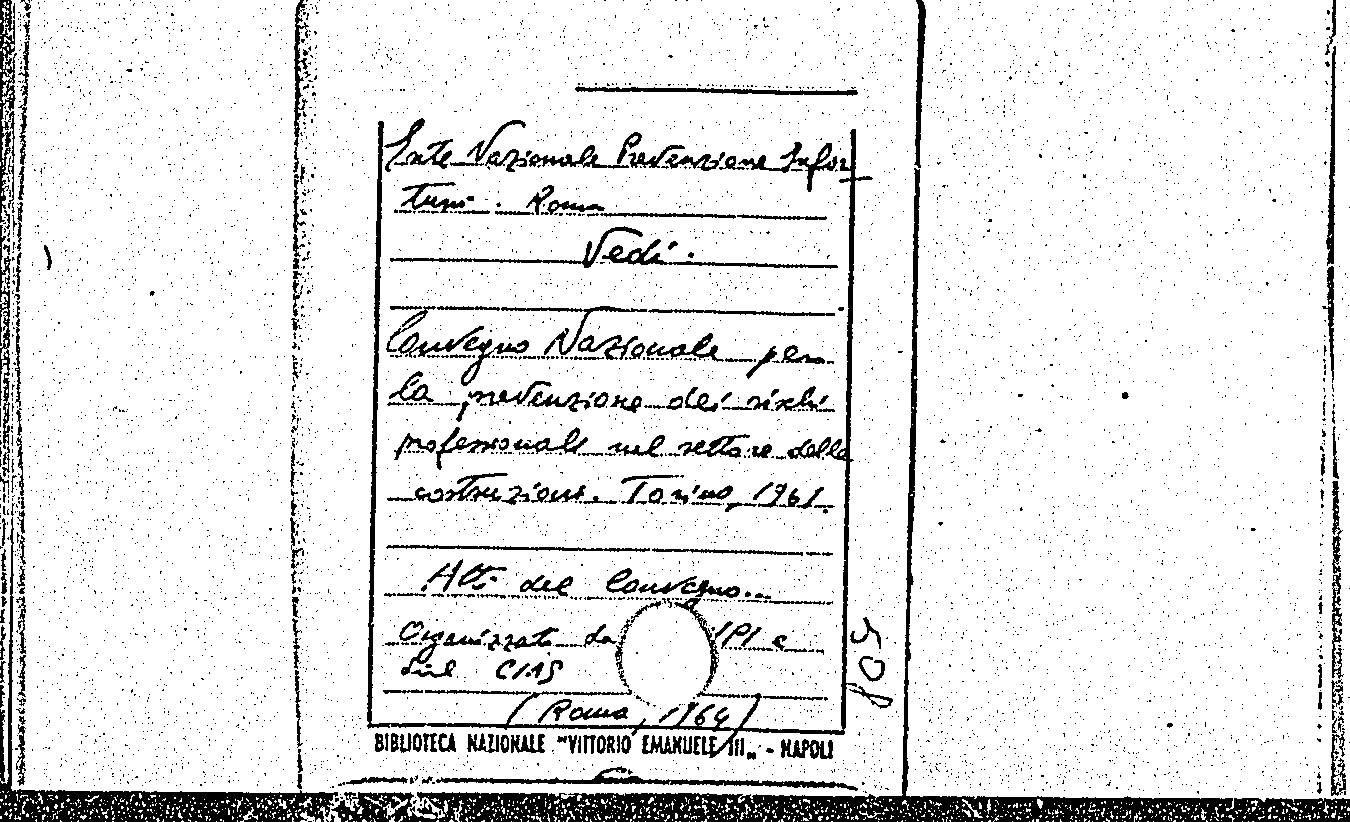 Ente Nazionale Prevenzione Infor
tuni. Roma
Vedi.
Convegno Nazionale per
la prevenzione dei rischi
professionali nel settore delle
costruzioni. Torino, 1961.
Atti del Convegno...
Organizzato da IPI e
dal CIAS
(Roma, 1964)
BIBLIOTECA NAZIONALE "VITTORIO EMANUELE III„ - NAPOLI
508